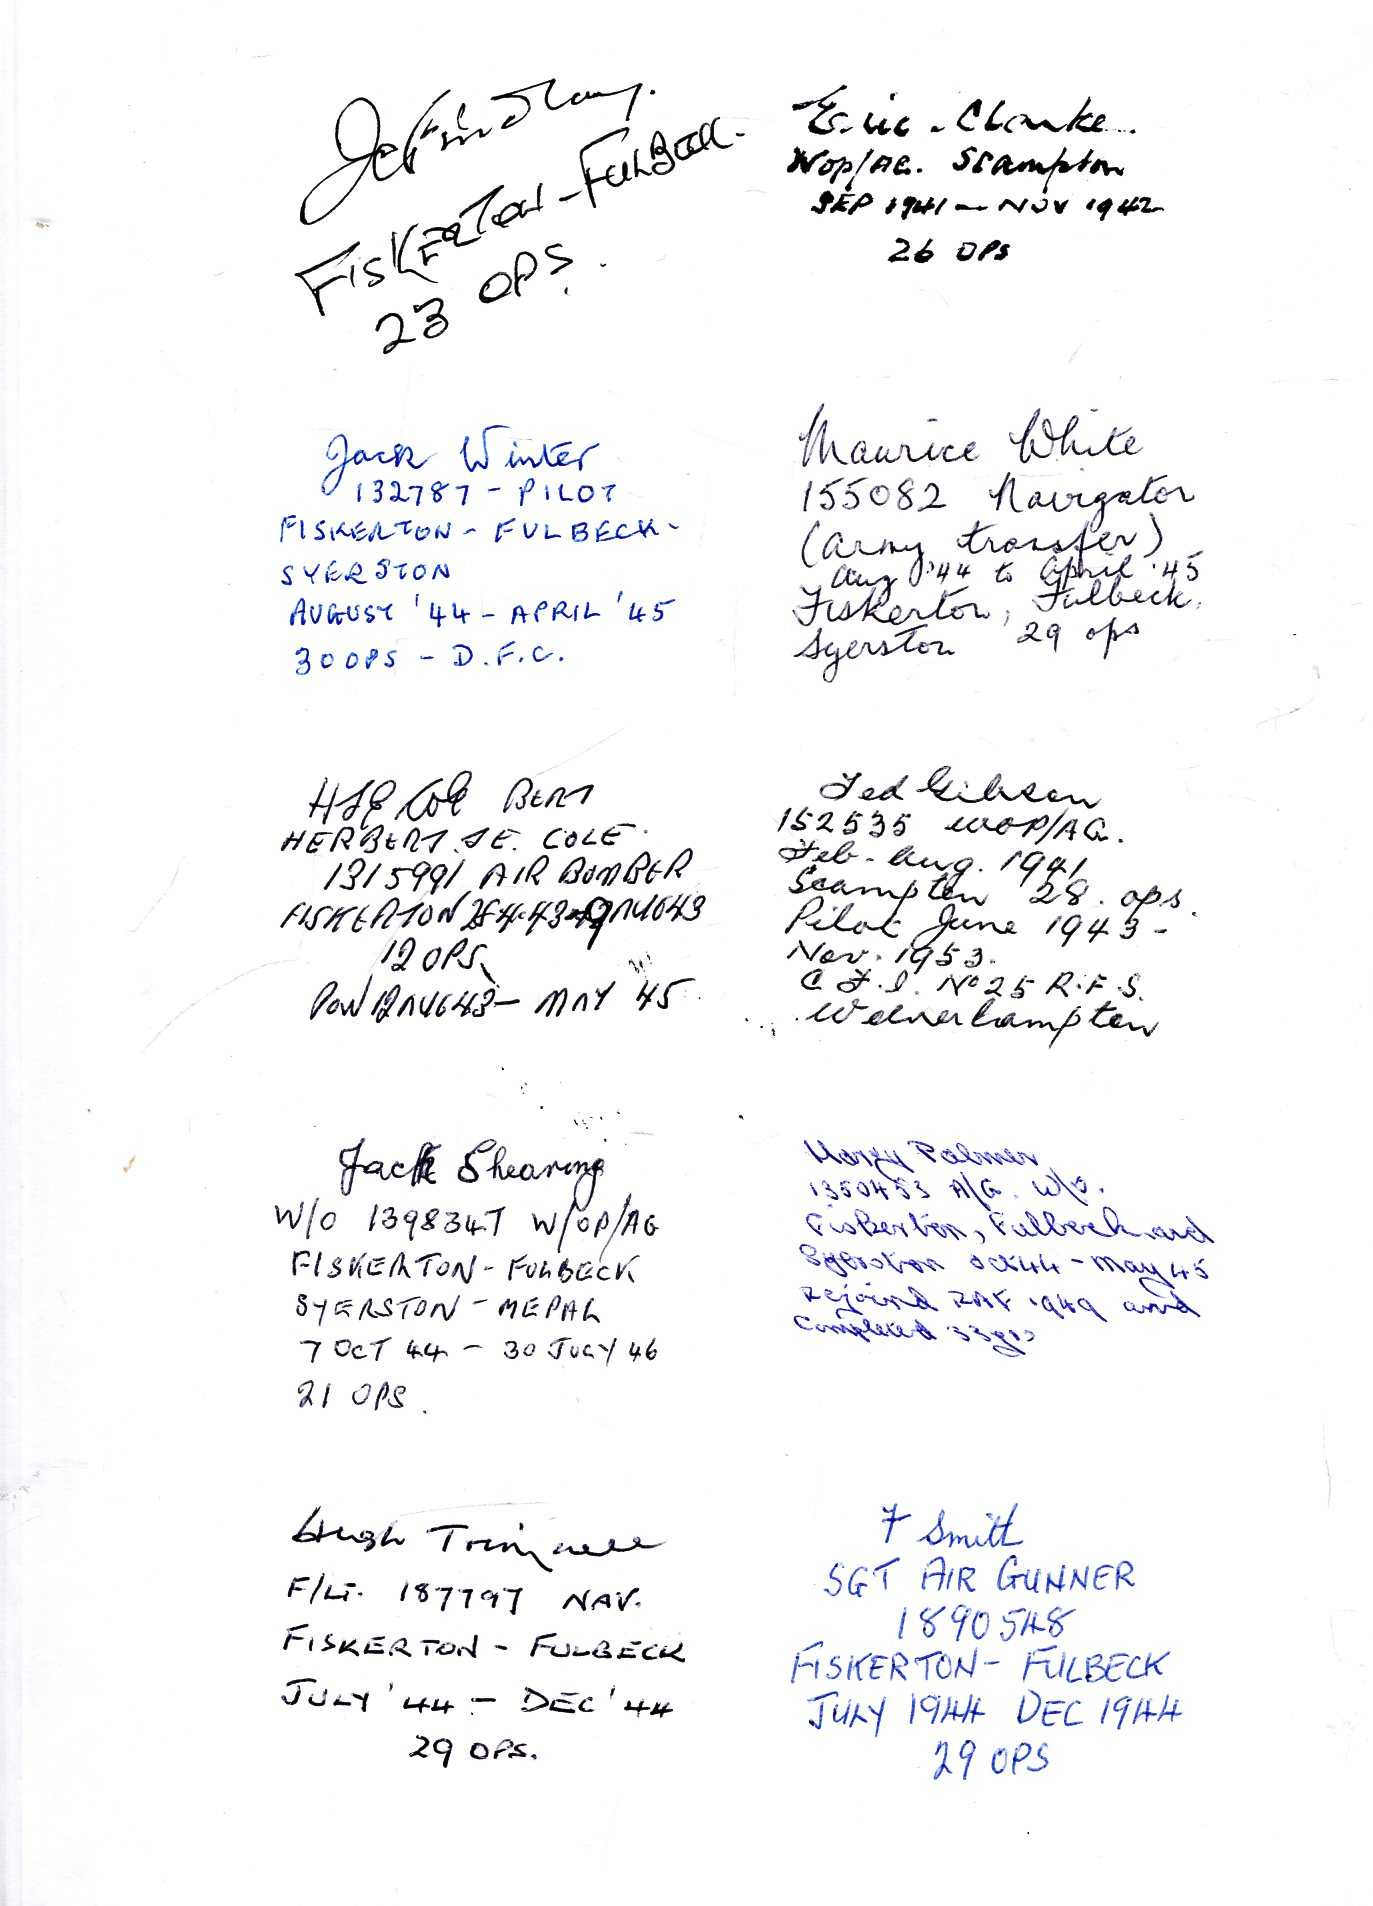 FISKERTON - FULBECK.
23 OPS.
Eric Clarke.
Wop/AG. Scampton
SEP 1941 - NOV 1942
26 OPS
Jack Winter
132787 - PILOT
FISKERTON - FULBECK -
SYERSTON
AUGUST '44 - APRIL '45
30 OPS - D.F.C.
Maurice White
155082 Navigator
(army transfer)
Aug '44 to April '45
Fiskerton, Fulbeck,
Syerston 29 ops
HJE Cole BERT
HERBERT. J.E. COLE.
1315991 AIR BOMBER
FISKERTON AUG 43
12 OPS.
POW 12 AUG 43 - MAY 45
Ted Gibson
152535 WOP/AG.
Feb - Aug. 1941
Scampton 28. ops.
Pilot June 1943 -
Nov. 1953.
C.F.I. No 25 R.F.S.
Wolverhampton
Jack Shearing
W/O 1398347 W/OP/AG
FISKERTON - FULBECK
SYERSTON - MEPAL
7 OCT 44 - 30 JULY 46
21 OPS.
Palmer
1350453 A/G. W/O.
Fiskerton, Fulbeck and
Syerston Oct 44 - May 45
Rejoined RAF 1949 and
Completed 33yrs
Hugh
F/LT. 187797 NAV.
FISKERTON - FULBECK
JULY '44 - DEC '44
29 OPS.
F Smith
SGT AIR GUNNER
1890548
FISKERTON - FULBECK
JULY 1944 DEC 1944
29 OPS